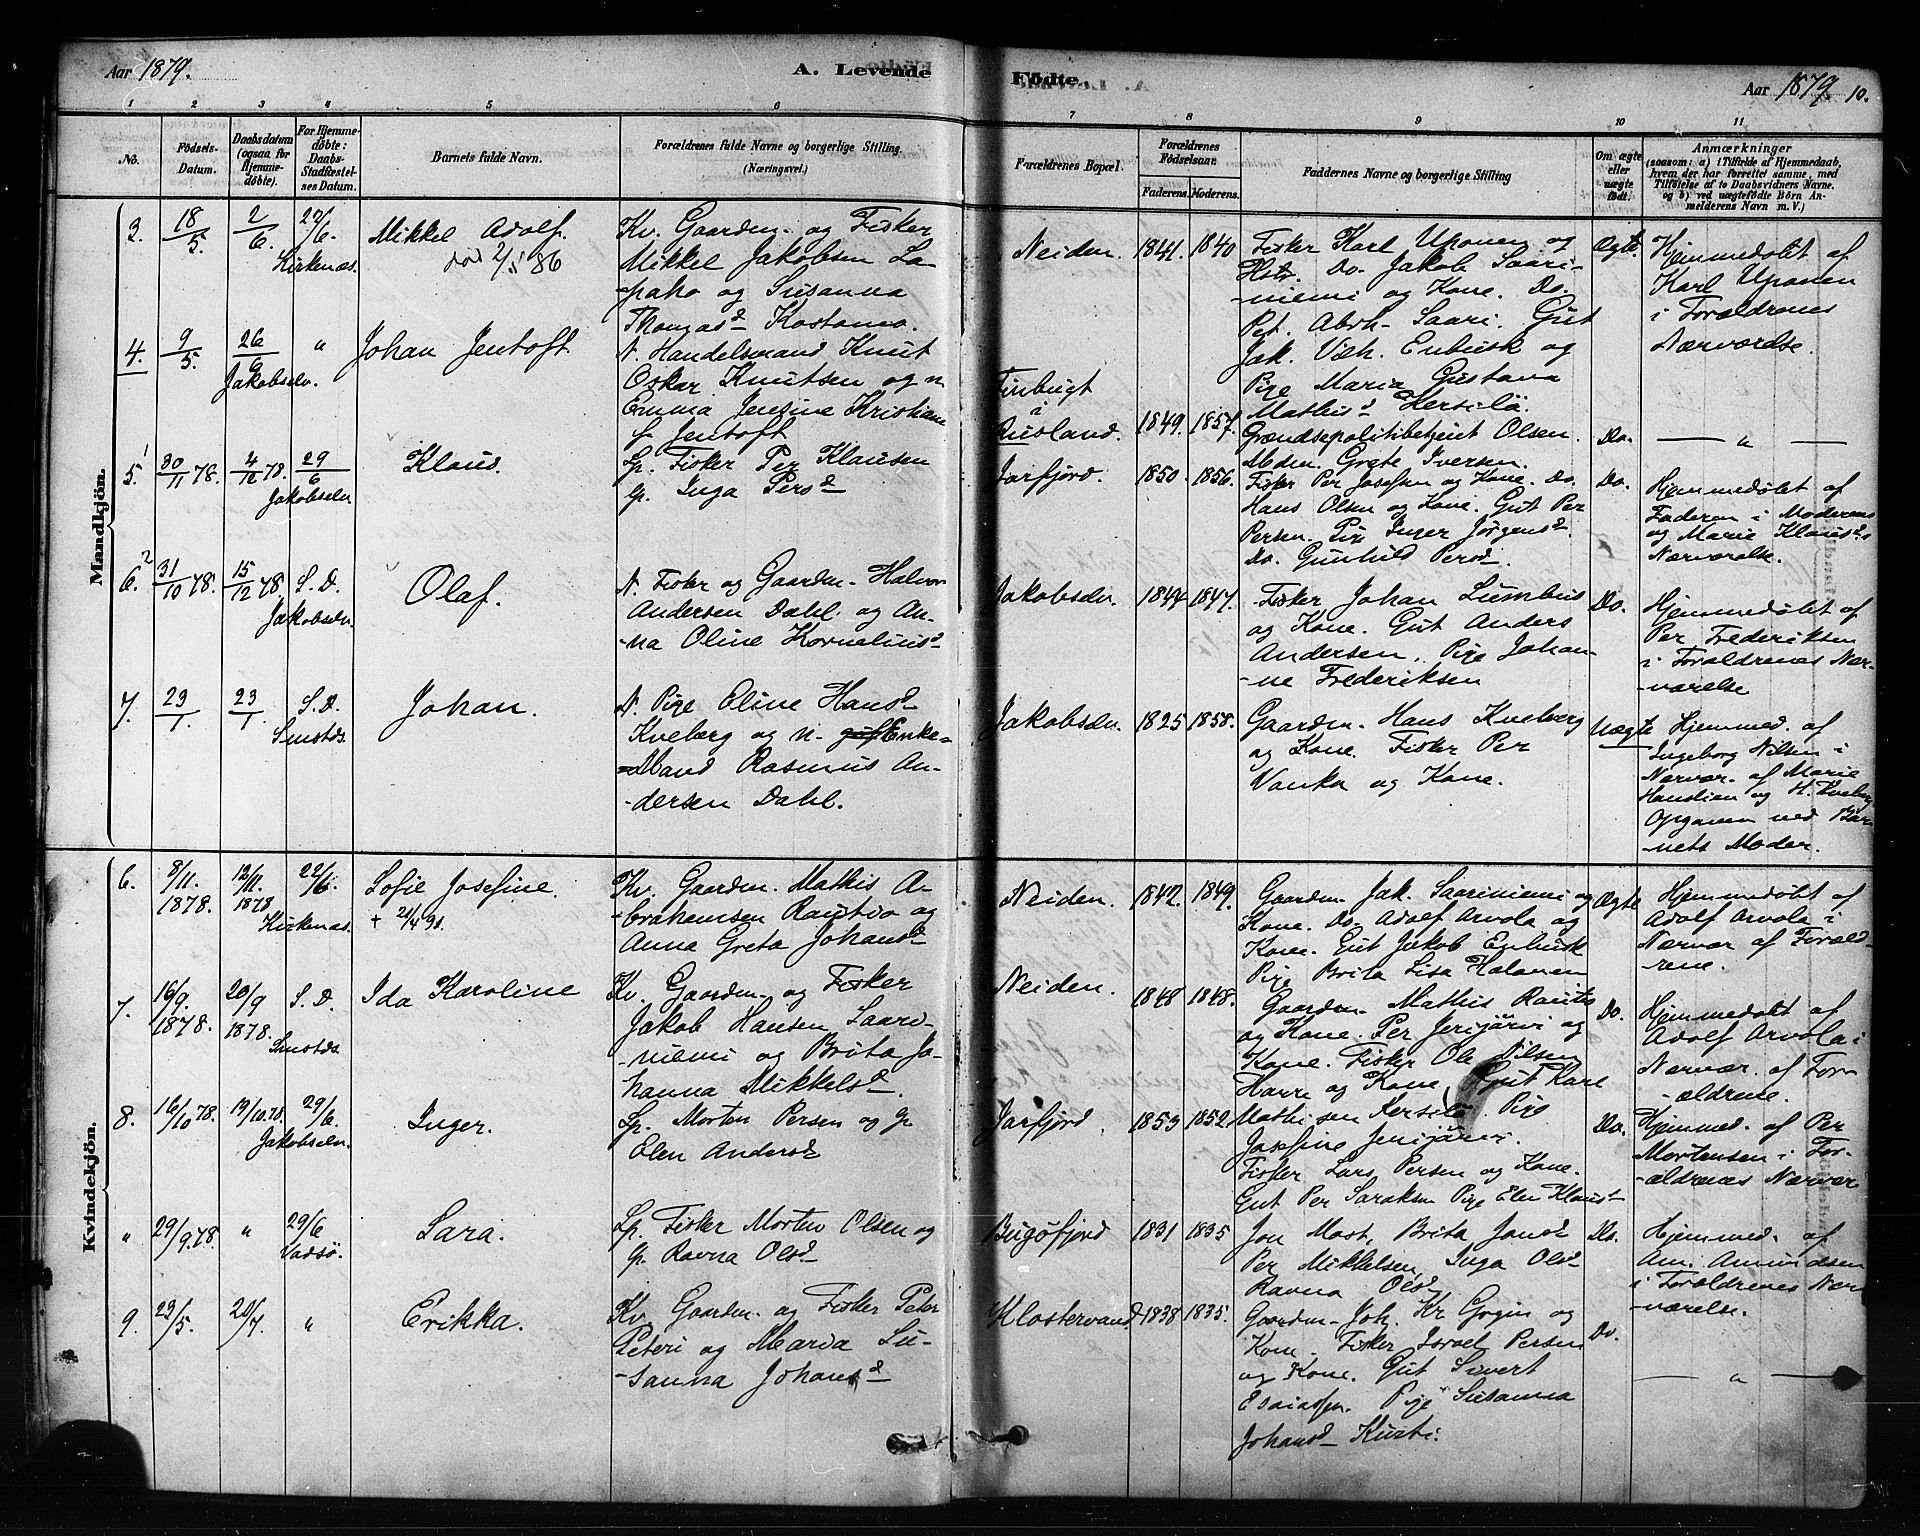 Aar 1879.
A. Levende
Födte.
Aar 1879 10.
1 2 3 4 5 6 7 8 9 10 11
No.
Födsels-
Datum.
Daabsdatum
(ogsaa for
Hjemme-
døbte).
For Hjemme-
døbte:
Daabs-
Stadfæstel-
ses Datum.
Barnets fulde Navn.
Forældrenes fulde Navne og borgerlige Stilling.
(Næringsvei.)
Forældrenes Bopæl.
Forældrenes
Födselsaar.
Faderens. Moderens.
Faddernes Navne og borgerlige Stilling
Om ægte
eller
uægte
født.
Anmærkninger
(saasom: a) i Tilfælde af Hjemmedaab,
hvem der har forrettet samme, med
Tilföielse af to Daabsvidners Navne.
og b) ved uægtefödte Börn An-
melderens Navn m. V.)
Mandkjön.
3. 18/5 2/6 29/6
Kirkenæs.
Mikkel Adolf.
död 2/5 86
Kv. Gaardm. og Fisker
Mikkel Jakobsen La-
-paho og Susanna
Thomasd Kostamo.
Neiden. 1841. 1840
Fisker Karl Uponen og
Hstr. Do. Jakob Saari-
-niemi og Kone. Do.
Pet. Abrh. Saari. Gut
Jak. Vilh. Enbusk og
Pige Maria Gustava
Mathisd Kersilö.
Ægte.
Hjemmedøbt af
Karl Uponen
i Forældrenes
Nærværelse.
4. 9/5 26/6 "
Jakobselv.
Johan Jentoft
N. Handelsmand Knut
Oskar Knutsen og n.
Emma Jensine Kristiane
f. Jentoft
Finbugt
i
Rusland. 1849. 1857.
Grændsepolitibetjent Olsen.
Mdm. Grete Iversen.
Do. — " —
5. 30/11 78. 4/12 78. 29/6
Jakobselv.
Klaus.
Lp. Fisker Per Klausen
Gp. Inga Persd
Jarfjord. 1850. 1856.
Fisker Per Josefsen og Kone. Do.
Hans Olsen og Kone. Gut Per
Persen. Pige Inger Jörgensd
Do. Gunhild Persd.
Do.
Hjemmedøbt af
Faderen i Moderens
og Marie Klausd
Nærværelse.
6. 31/10 78. 15/12 78. S.D.
Jakobselv.
Olaf.
N. Fisker og Gaardm. Halvor
Andersen Dahl. og An-
-na Oline Korneliusd
Jakobselv. 1844. 1847.
Fisker Johan Lumbus
og Kone. Gut Anders
Andersen. Pige Johan-
-ne Frederiksen
Do.
Hjemmedøbt af
Per Frederiksen
i Forældrenes Nær-
-værelse
7. 23/1 23/1 S.D.
Smstds.
Johan.
N. Pige Eline Hansd
Kveberg og n. Enke-
-Mand Rasmus An-
-dersen Dahl.
Jakobselv. 1825. 1858.
Gaardm. Hans Kveberg
og Kone. Fisker Per
Vanka og Kone.
Uægte
Hjemmed. af
Ingeborg Nilsen i
Nærvær. af Marie
og H. Kveberg
ved Bar-
nets Moder.
Kvindekjön.
6. 8/11. 1878. 12/11. 1878 22/6.
Kirkenæs.
Sofie Josefine.
+ 21/4 91.
Kv. Gaardm. Mathis A-
-brahamsen Rautio og
Anna Greta Johansd
Neiden. 1842. 1849.
Gaardm. Jak. Saariniemi og
Kone. Do. Adolf Arvola og
Kone. Gut Jakob Enbusk
Pige Brita Lisa Halonen
Ægte
Hjemmedøbt af
Adolf Arvola i
Nærvær af Foræld-
rene.
7. 16/9. 1878. 20/9 1878. S.D.
Smstds.
Ida Karoline
Kv. Gaardm. og Fisker
Jakob Hansen Saari-
-niemi og Brita Jo-
hanna Mikkelsd.
Neiden. 1848 1848.
Gaardm. Mathis Rautio
og Kone. Per Jerijärvi og
Kone. Fisker Ole Nilsen
Harre og Kone. Gut Karl
Mathisen Kersilö. Pige
Josefine Jerijärvi.
Do.
Hjemmedøbt af
Adolf Arvola i
Nærvær. af For-
-ældrene.
8. 16/10 78. 19/10.78. 29/6.
Jakobselv.
Inger.
Lp. Morten Persen og Gp.
Elen Andersd
Jarfjord. 1853 1852.
Fisker Lars Persen og Kone.
Gut Per Saraksen Pige Elen Klausd
Do.
Hjemmed. af Per
Mortensen i For-
-ældrenes Nærvær
" 29/9.78. " 29/6
Vadsö.
Sara.
Lp. Fisker Morten Olsen og
Gp. Ravna Olsd
Bugöfjord 1831 1835
Jon Most, Brita Jonsd
Per Mikkelsen, Inga Olsd
Ravna Olsd
Do.
Hjemmed. af
Am. Amundsen
i Forældrenes Nær
-værelse.
9. 23/5. 20/7. "
Erikka.
Kv. Gaardm. og Fisker Peter
Peteri og Maria Su-
-sanna Johansd
Klostervand 1838 1835.
Gaardm. Joh. Kr. Gogin og
Kone. Fisker Israel Persen
og Kone. Gut Sivert
Esaiassen. Pige Susanna
Johansd Kusti.
Do. — " —